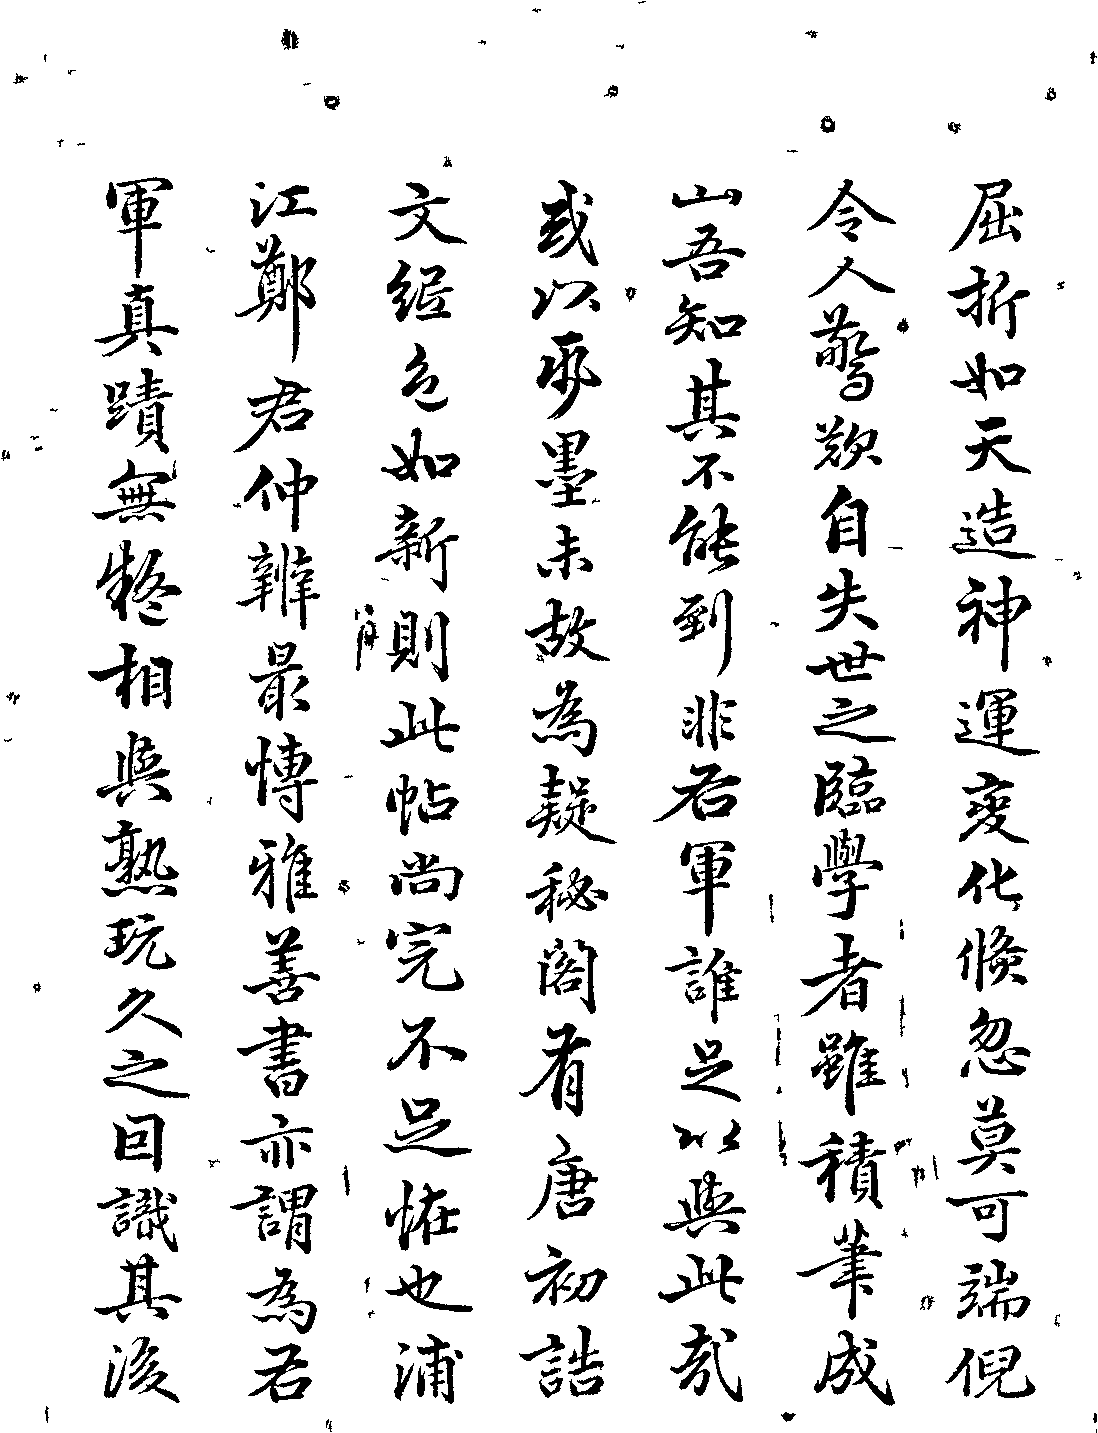 屈折如天造神運變化倏忽莫可端倪
令人驚歎自失世之臨學者雖積筆成
山吾知其不能到非右軍誰足以與此哉
或以乎墨未故為疑秘閣有唐初誥
文縆色如新則此帖尚完不足恠也浦
江鄭君仲辨最博雅善書亦謂為右
軍真蹟無疑相與熟玩久之回識其後